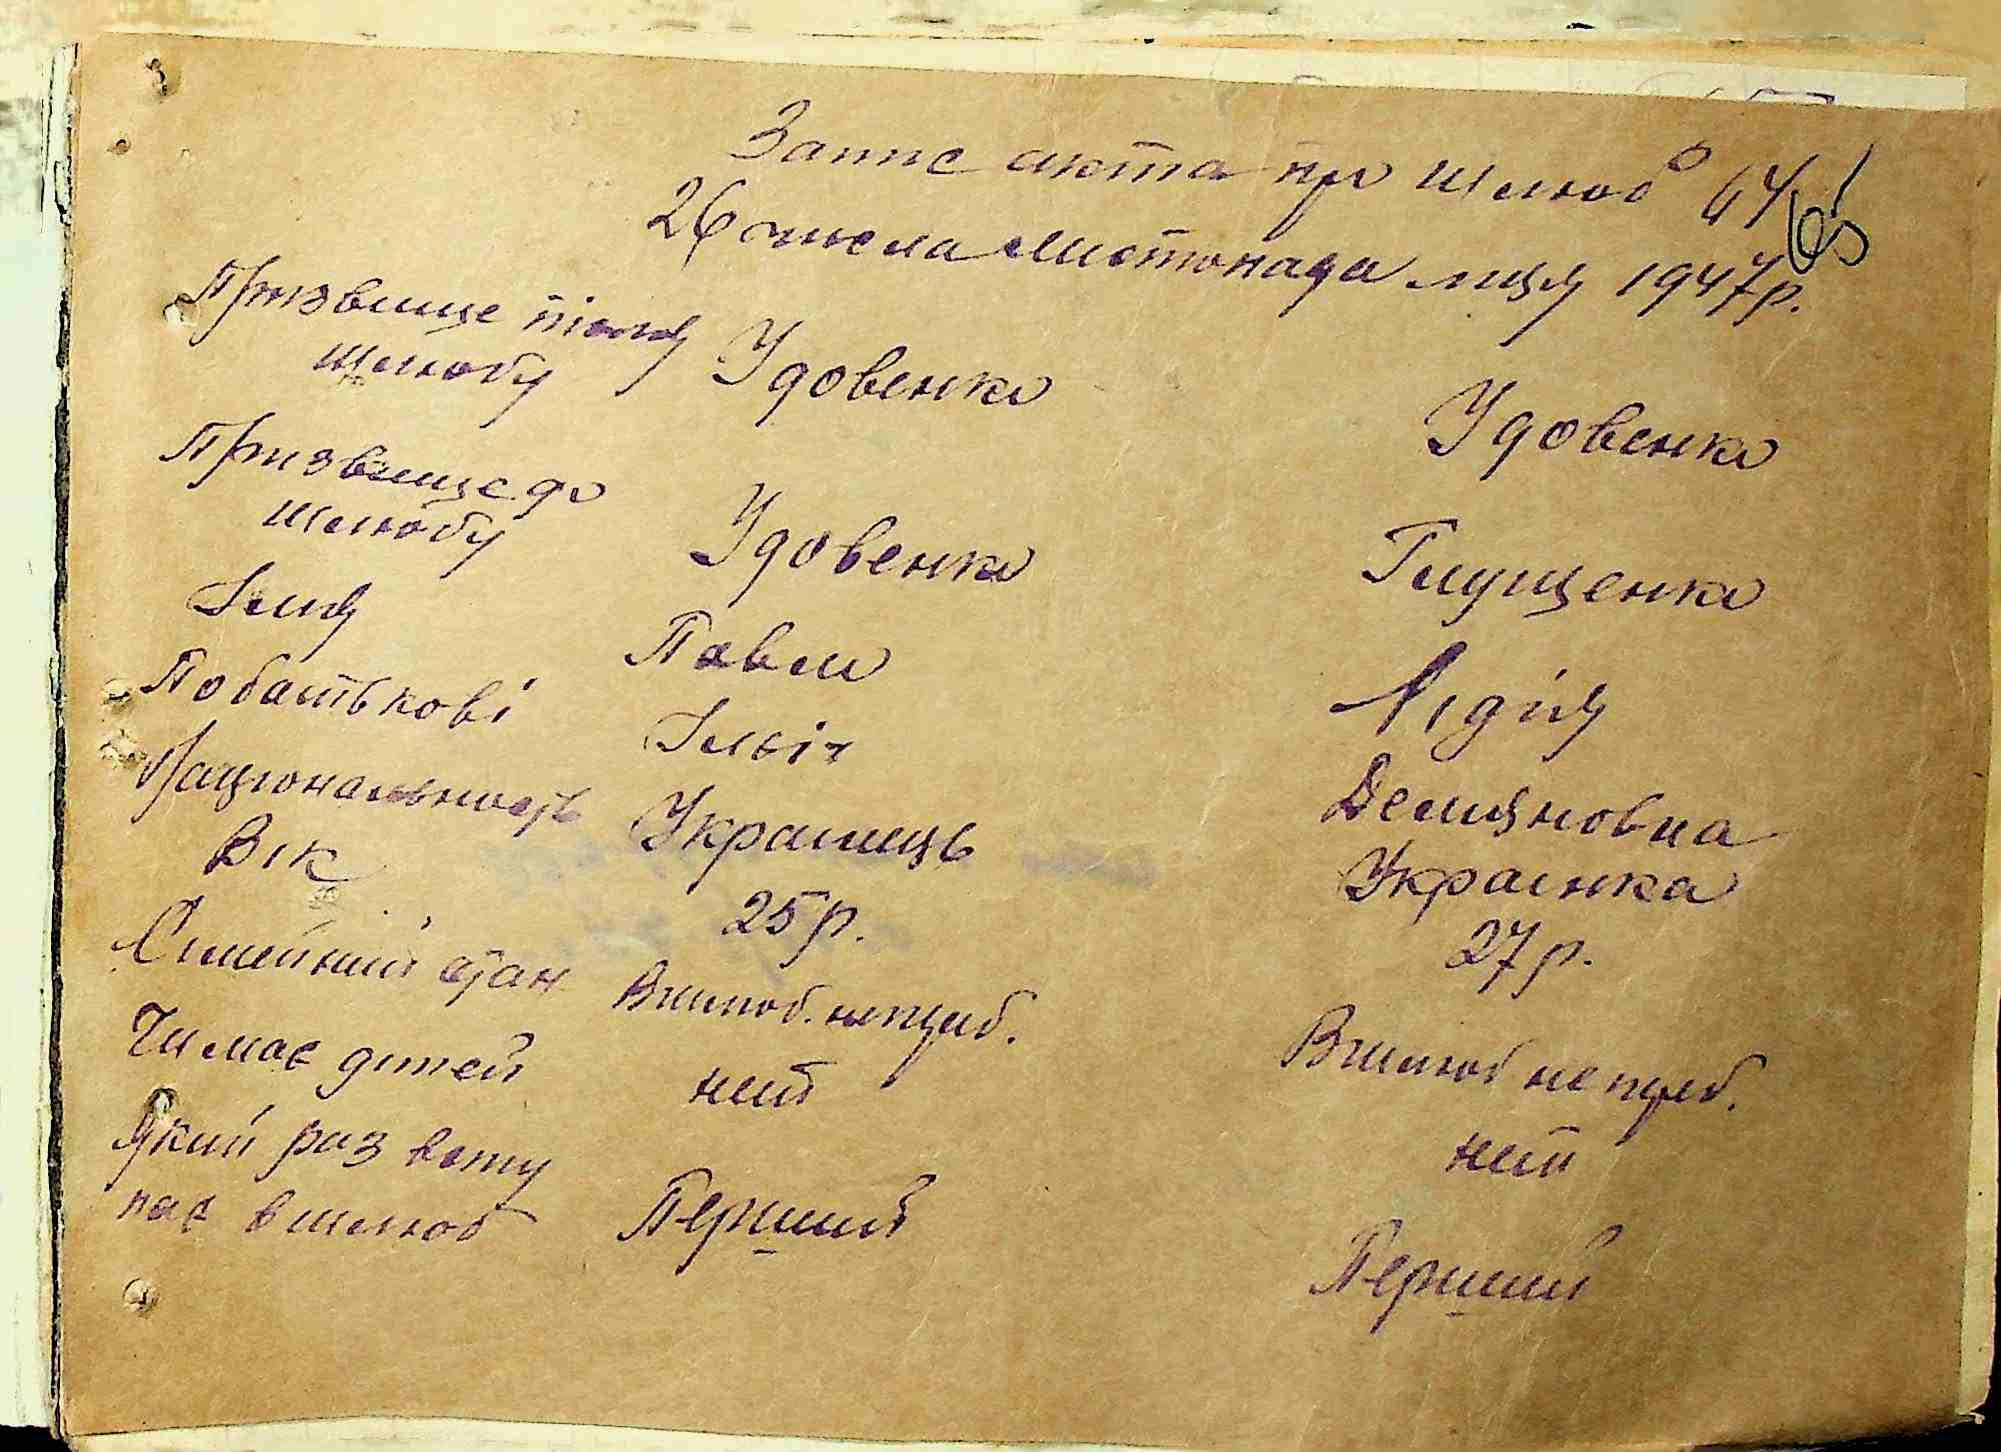 Запис акта про шлюб 64
26 числа листопада міця 1947р.
Призвище після шлюбу Удовенко Удовенко
Призвище до шлюбу Удовенко Глущенко
Імя Павло Лідія
Побатькові Ільіч Демяновна
Національность Украинець Украінка
Вік 25р. 27р.
Сімейний стан Вшлюб. не переб. Вшлюб не переб.
Чи має дітей неті неті
Який раз вступає в шлюб Перший Перший